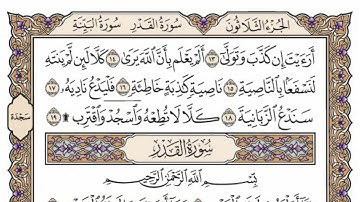 الجزء الثلاثون سورة القدر سورة البينة
أرءيت إن كذب وتولى ١٣ ألم يعلم بأن الله يرى ١٤ كلا لئن لم ينته
لنسفعا بالناصية ١٥ ناصية كذبة خاطئة ١٦ فليدع ناديه ١٧
سندع الزبانية ١٨ كلا لا تطعه واسجد واقترب ۩ ١٩
سجدة
سورة القدر
بسم الله الرحمن الرحيم